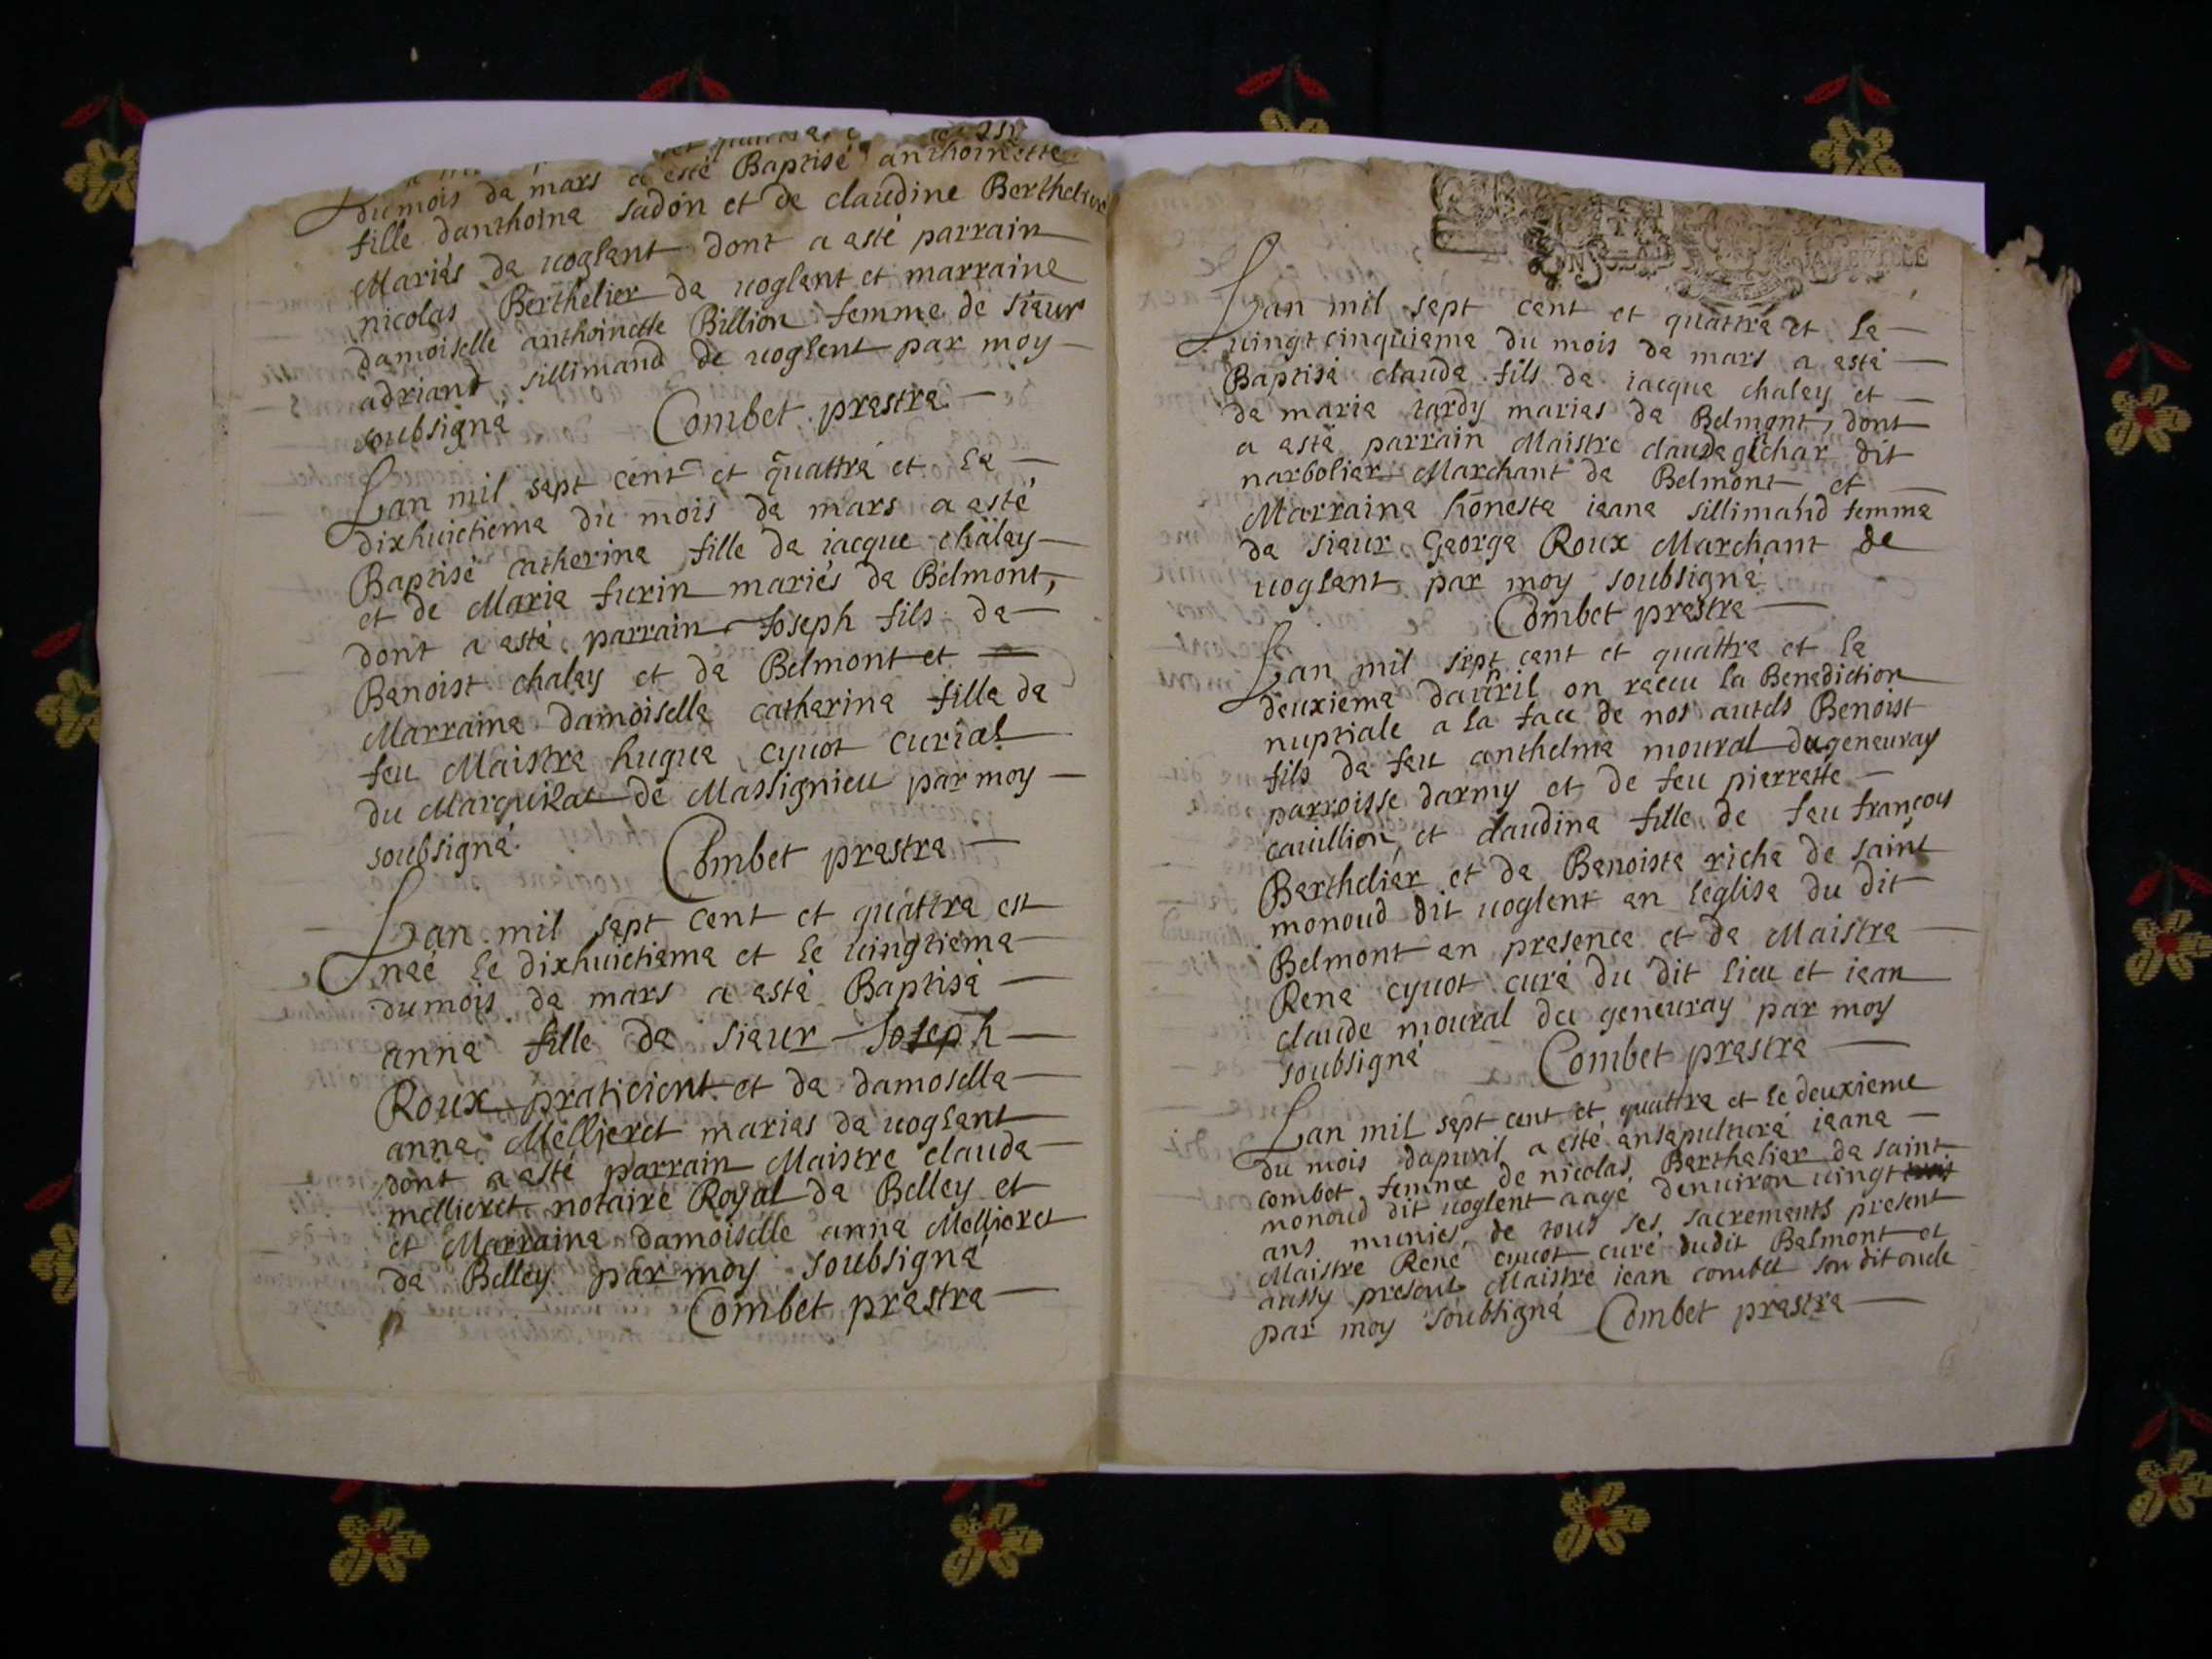 du mois de mars a esté Baptisé anthoinette
fille danthoine sadon et de claudine Berthelier
Mariés de uoglent dont a esté parrain
nicolas Berthelier de uoglent et marraine
damoiselle anthoinette Billion femme de sieur
adriand sillimand de uoglent par moy
soubsigné Combet prestre
Lan mil sept cent et quattre et le
dixhuictieme du mois de mars a esté
Baptisé catherine fille de iacque chaley
et de Marie furin mariés de Belmont,
dont a esté parrain Joseph fils de
Benoist chaley et de Belmont et
Marraine damoiselle catherine fille de
feu Maistre hugue cyuot curial
du Marquisat de Massignieu par moy
soubsigné Combet prestre
Lan mil sept cent et quattre est
neé le dixhuictieme et le uingtieme
du mois de mars a esté Baptisé
anne fille de sieur Joseph
Roux praticient et de damoselle
anne Mellieret mariés de uoglent
dont a esté parrain Maistre claude
mellieret notaire Royal de Belley et
et Marraine damoiselle anne Mellieret
de Belley par moy soubsigné
Combet prestre
Lan mil sept cent et quattre et le
uingt cinquieme du mois de mars a esté
Baptisé claude fils de iacque chaley et
de marie tardy mariés de Belmont, dont
a esté parrain Maistre claude gichar dit
narbolier Marchant de Belmont et
Marraine honeste ieane sillimand femme
de sieur George Roux Marchant de
uoglent par moy soubsigné
Combet prestre
Lan mil sept cent et quattre et le
deuxieme dauril on receu la Benediction
nuptiale a la face de nos autels Benoist
fils de feu anthelme moural du geneuray
parroisse darmy et de feu pierrette
cauillion, et claudine fille de feu françois
Berthelier et de Benoiste riche de saint
monoud dit uoglent en léglise du dit
Belmont en presence et de Maistre
René cyuot curé du dit lieu et iean
claude moural du geneuray par moy
soubsigné Combet prestre
Lan mil sept cent et quattre et le deuxieme
du mois dapuril a esté ensepulturé ieane
combet femme de nicolas Berthelier de saint
monoud dit uoglent aagé denuiron uingt
ans munies de tous ses sacrements present
Maistre René cyuot curé dudit Belmont et
aussy present Maistre iean combet son dit oncle
par moy soubsigné Combet prestre